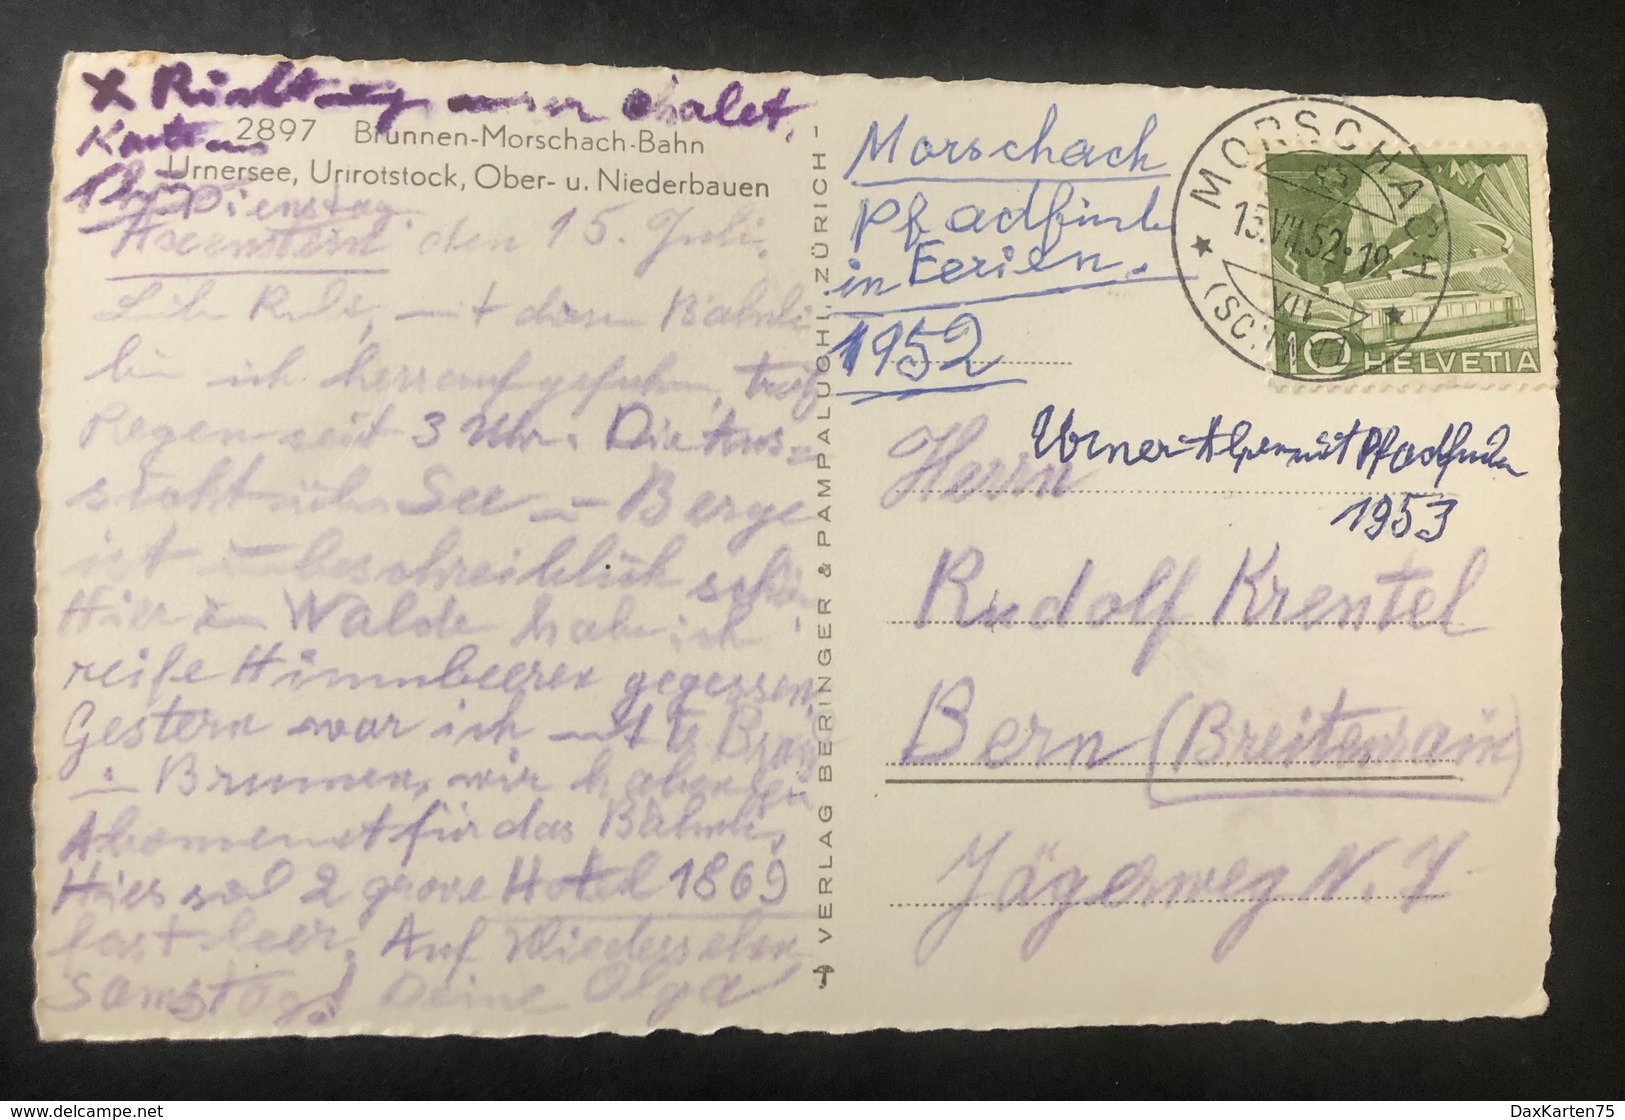 x Richtung unser Chalet.
2897 Brunnen-Morschach-Bahn
Urnersee, Urirotstock, Ober- u. Niederbauen
Dienstag
Axenstein den 15. Juli.
mit diesem Bähnli
bin ich herraufgefahren, trotz
Regen seit 3 Uhr. Die Aus-
sicht über See u Berge
ist unbeschreiblich schön
Hier im Walde habe ich
reife Himmbeeren gegessen,
Gestern war ich mit
in Brunnen, wir haben
Abonnenet für das Bähnli,
Hier sind 2 grosse Hotel 1869
fast leer. Auf Wiedersehen
Samstag! Deine Olga
VERLAG BERINGER & PAMPALUCHI, ZÜRICH -
Morschach
Pfadfinder
in Ferien.
1952
MORSCHACH
15.VII.52-19
VII
(SCHWYZ)
10 HELVETIA
Urner-Alpen mit Pfadfinder
1953
Herrn
Rudolf Krentel
Bern (Breitenrain)
Jägerweg N. 7
DaxKarten75